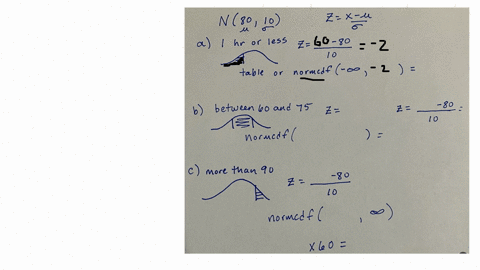 N(80, 10) z = x-μ
μ σ σ
a) 1 hr or less z = 60-80 = -2
10
table or normcdf(-∞, -2) =
b) between 60 and 75 z = z = -80 =
10
normcdf( ) =
c) more than 90 z = -80
10
normcdf( , ∞)
x60 =